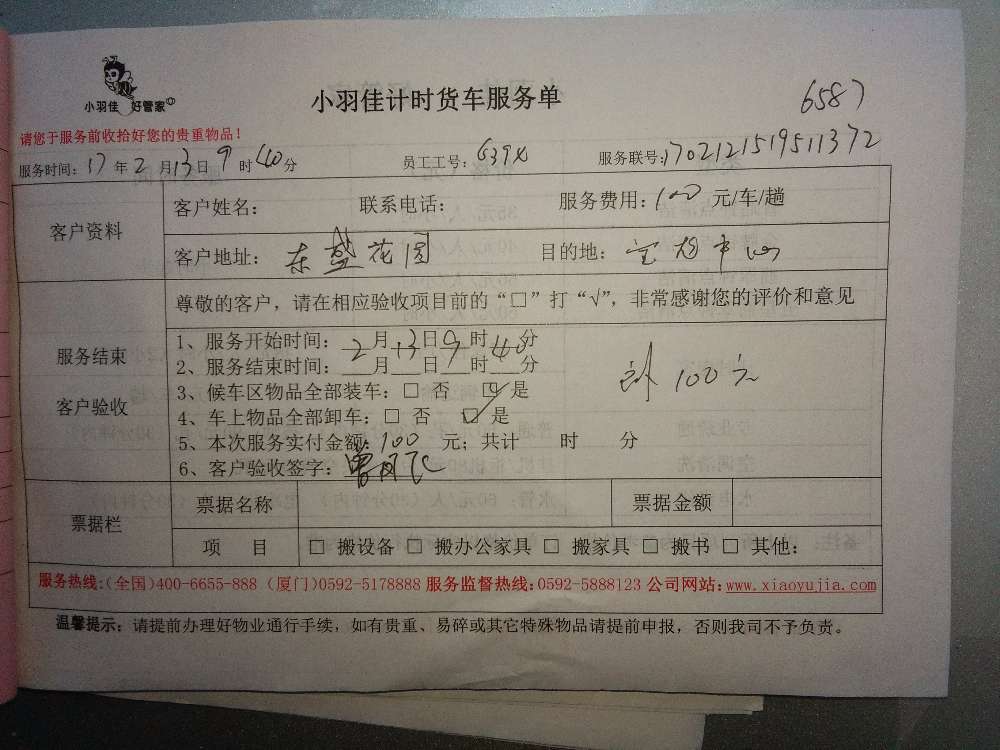 小羽佳 好管家
小羽佳计时货车服务单
6587
请您于服务前收拾好您的贵重物品！
服务时间：17年2月13日9时40分 员工工号：639X 服务联号：170212151951137 2
客户资料
客户姓名： 联系电话： 服务费用：100元/车/趟
客户地址：东盛花园 目的地：
服务结束
客户验收
尊敬的客户，请在相应验收项目前的“□”打“√”，非常感谢您的评价和意见
1、服务开始时间：2月13日9时40分
2、服务结束时间：___月___日___时___分
3、候车区物品全部装车：□ 否 □ 是
4、车上物品全部卸车：□ 否 □ 是
5、本次服务实付金额：100元；共计 时 分
6、客户验收签字：
100元
票据栏
票据名称 票据金额
项 目 □ 搬设备 □ 搬办公家具 □ 搬家具 □ 搬书 □ 其他：
服务热线：(全国)400-6655-888 (厦门)0592-5178888 服务监督热线：0592-5888123 公司网站：www.xiaoyujia.com
温馨提示：请提前办理好物业通行手续，如有贵重、易碎或其它特殊物品请提前申报，否则我司不予负责。